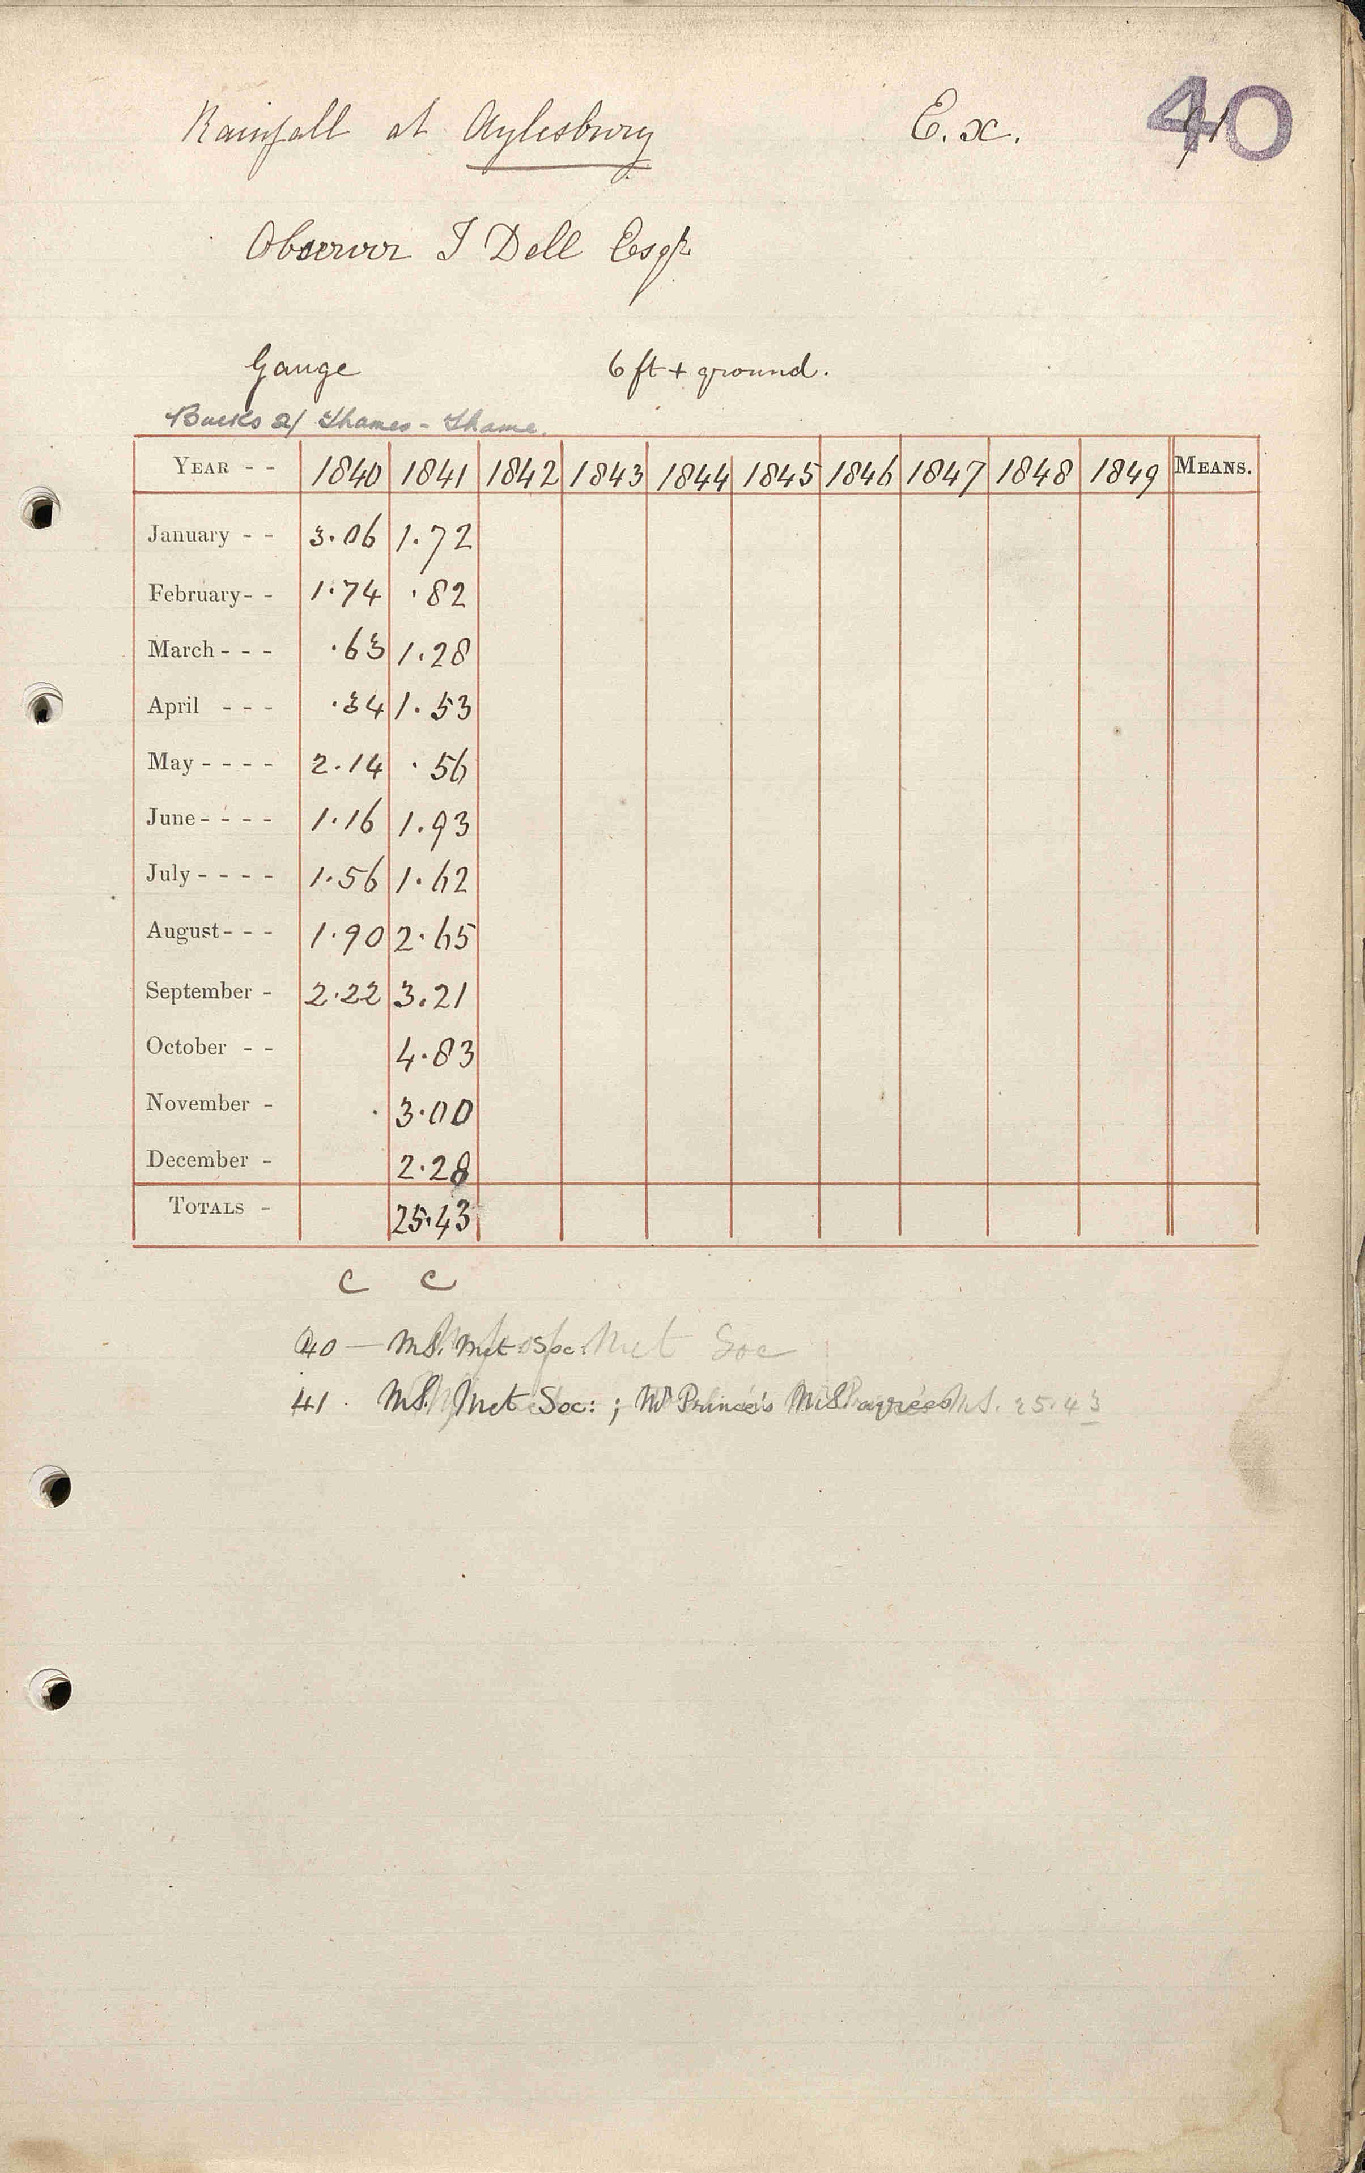 Rainfall at Aylesbury E.x. 40
Observer J Dell Esqr
Gauge 6 ft + ground.
Bucks 2/ Thames - Thame.
YEAR - - 1840 1841 1842 1843 1844 1845 1846 1847 1848 1849 MEANS.
January - - 3.06 1.72
February - - 1.74 .82
March - - - .63 1.28
April - - - .34 1.53
May - - - - 2.14 .56
June - - - - 1.16 1.93
July - - - - 1.56 1.62
August - - - 1.90 2.65
September - 2.22 3.21
October - - 4.83
November - 3.00
December - 2.28
TOTALS - 25.43
C C
40 — MS. Met. Soc. Met Soc
41. MS. Met Soc: ; Mr Prince's MS agrees MS. 25.43